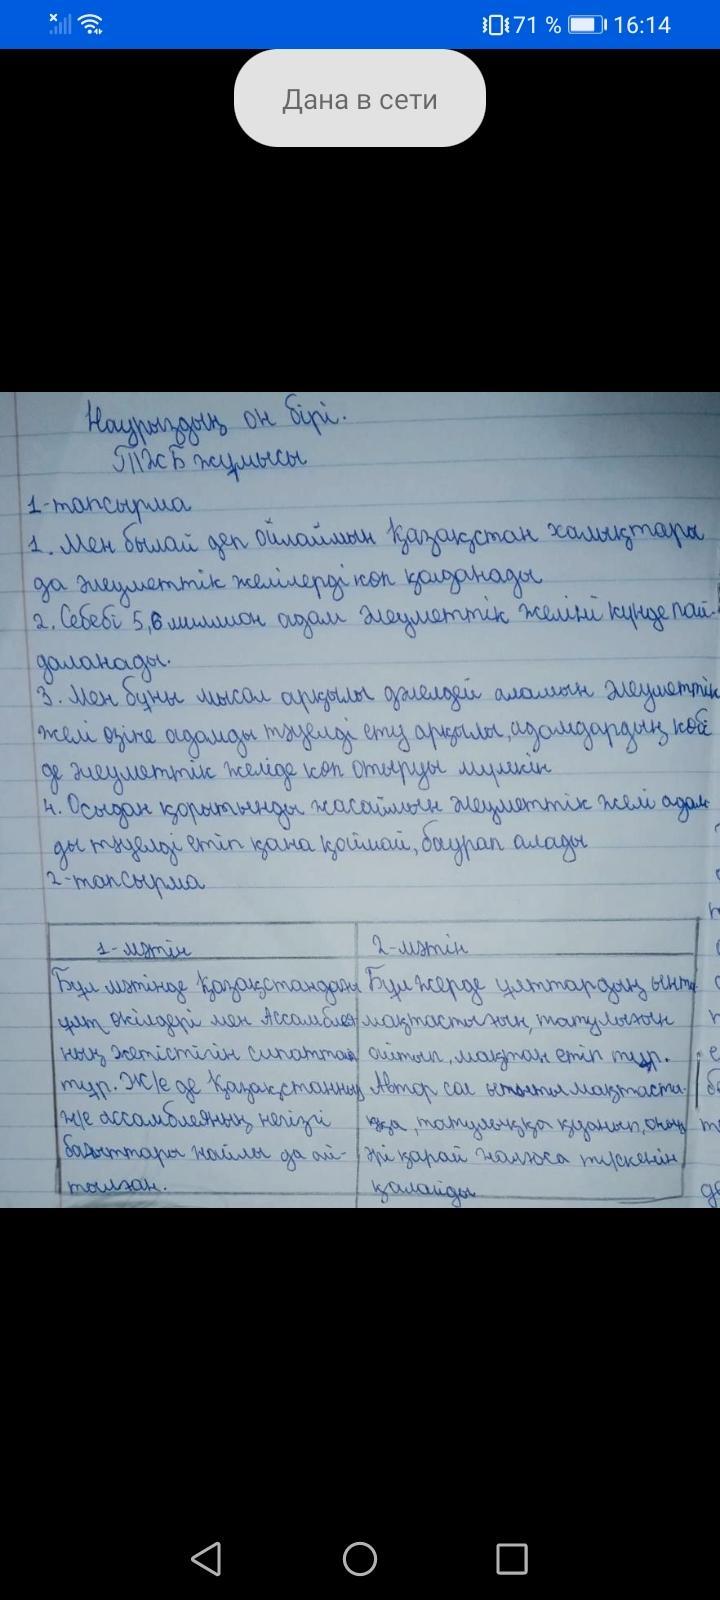 71 % 16:14
Дана в сети
Наурыздың он бірі.
ТЖБ жұмысы
1-тапсырма
1. Мен былай деп ойлаймын Қазақстан халықтары
да әлеуметтік желілерді көп қолданады
2. Себебі 5,6 миллион адам әлеуметтік желіні күнде пай-
даланады.
3. Мен бұны мысал арқылы дәлелдей аламын әлеуметтік
желі өзіне адамды тәуелді ету арқылы, адамдардың көбі
де әлеуметтік желіде көп отыруы мүмкін
4. Осыдан қорытынды жасаймын әлеуметтік желі адам-
ды тәуелді етіп қана қоймай, баурап алады
2-тапсырма
1-мәтін
Бұл мәтінде Қазақстандағы
ұлт өкілдері мен Ассамблея
ның жетістігін сипаттап
тұр. Ж/е де Қазақстанның
ж/е ассамблеяның негізгі
бағыттары жайлы да ай-
тылған.
2-мәтін
Бұл жерде ұлттардың ынты
мақтастығын, татулығын
айтып, мақтан етіп тұр.
Автор сол ынтымақтасты-
ққа, татулыққа қуанып, оның
әрі қарай жалғаса түскенін
қалайды